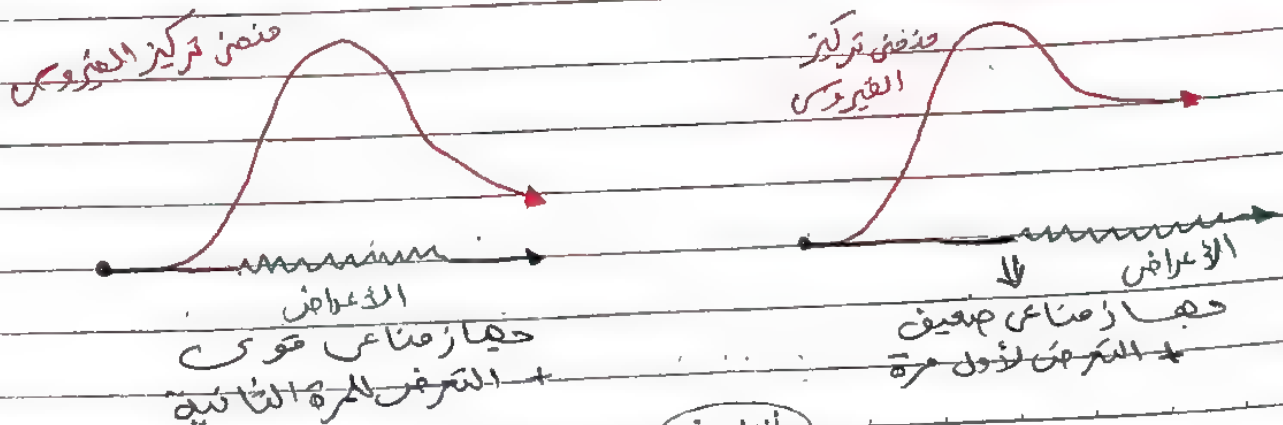 منحنى تركيز الفيروس
الأعراض
جهاز مناعى قوى
+ التعرض للمرة الثانية
منحنى تركيز
الفيروس
الأعراض
جهاز مناعى ضعيف
+ التعرض لأول مرة